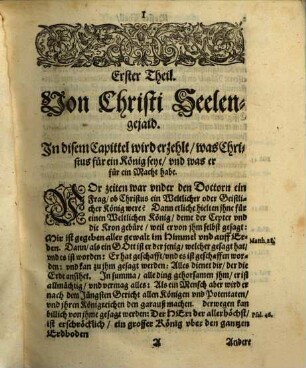 I
Erster Theil.
Von Christi Seelen-
gejaid.
In disem Capittel wird erzehlt / was Chri-
stus für ein König seye / vnd was er
für ein Macht habe.
VOr zeiten war vnder den Doctorn ein
Frag / ob Christus ein Weltlicher oder Geistli-
cher König were? Dann etliche hielten jhne für
einen Weltlichen König / deme der Cepter vnd
die Kron gebürt / weil er von jhm selbst gesagt:
Mir ist gegeben aller gewalt im Himmel vnd auff Er- Matth. 28.
den. Dann / als ein GOtt ist er derjenig / welcher gesagt hat /
vnd es ist worden: Er hat geschafft / vnd es ist geschaffen wor-
den: vnd kan zu jhm gesagt werden: Alles dienet dir / der die
Erd anfihet. In summa / alle ding gehorsamen jhm / er ist
allmächtig / vnd vermag alles: Als ein Mensch aber wird er
nach dem Jüngsten Gericht allen Königen vnd Potentaten /
vnd jhren Königreichen den garauß machen. derwegen kan
billich von jhme gesagt werden: Der HErr der allerhöchst /
ist erschröcklich / ein grosser König vber den gantzen Psal. 46.
Erdboden
A Andere